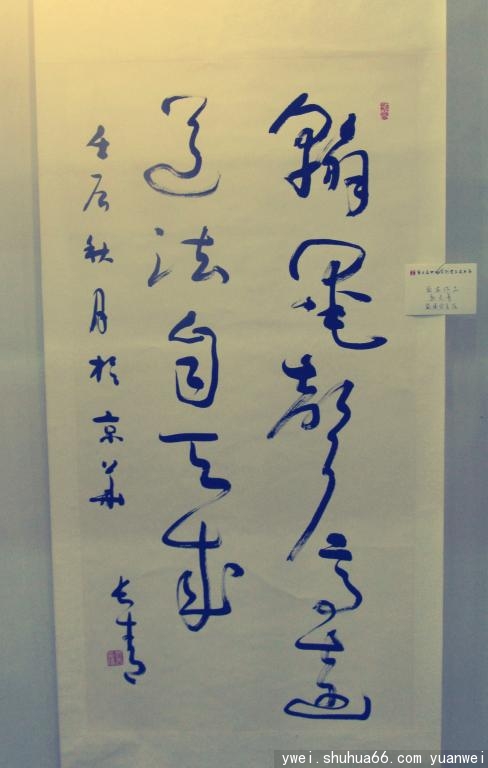 翰墨聲高遠
道法自天成
壬辰秋月於京華
长青
ywei.shuhua66.com yuanwei